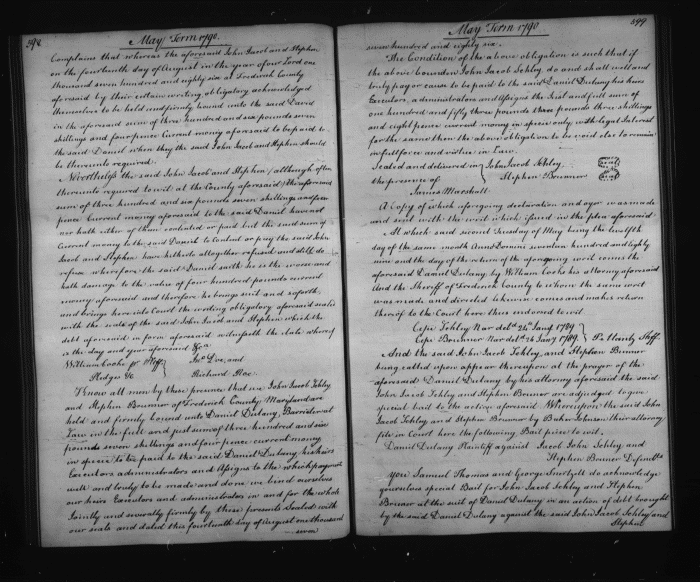 598
May Term 1790.
Complains that whereas the aforesaid John Jacob and Stephen
on the fourteenth day of August in the year of our Lord one
thousand seven hundred and eighty six at Frederick County
aforesaid by their certain writing obligatory acknowledged
themselves to be held and firmly bound unto the said David
in the aforesaid sum of three hundred and six pounds seven
shillings and four pence Current money aforesaid to be paid to
the said Daniel when they the said John Jacob and Stephen should
be thereunto required.
Nevertheless the said John Jacob and Stephen (although often
thereunto required to wit at the County aforesaid) the aforesaid
sum of three hundred and six pounds seven shillings and four
pence Current money aforesaid to the said Daniel have not
nor hath either of them rendered or paid but the said sum of
Current money to the said Daniel to Content or pay the said John
Jacob and Stephen have hitherto altogether refused and still do
refuse wherefore the said Daniel saith he is the worse and
hath damage to the value of four hundred pounds current
money aforesaid and therefore he brings suit and so forth.
and brings here into Court the writing obligatory aforesaid sealed
with the seals of the said John Jacob and Stephen which the
debt aforesaid in form aforesaid witnesseth the date whereof
is the day and year aforesaid &ca
William Cooke for Plff
Jno Doe and
Pledges &c
Richard Roe.
Know all men by these presents that we John Jacob Schley
and Stephen Bruner of Frederick County Maryland are
held and firmly bound unto Daniel Dulany Barrister at
Law in the full and just sum of three hundred and six
pounds seven shillings and four pence current money
in specie to be paid to the said Daniel Dulany his heirs
Executors administrators and Assigns to the which payment
well and truly to be made and done we bind ourselves
our heirs Executors and administrators in and for the whole
Jointly and severally firmly by these presents Sealed with
our seals and dated this fourteenth day of August one thousand
seven
599
May Term 1790
seven hundred and eighty six.
The Condition of the above obligation is such that if
the above bounden John Jacob Schley do and shall well and
truly pay or cause to be paid to the said Daniel Dulany his heirs
Executors, administrators and Assigns the Just and full sum of
one hundred and fifty three pounds three shillings
and eight pence current money in specie only with legal Interest
for the same then the above obligation to be void else to remain
in full force and virtue in Law.
Sealed and delivered in
John Jacob Schley
the presence of
Stephen Brunner
James Marshall.
A Copy of which aforegoing declaration and oyer was made
and sent with the writ which issued in the plea aforesaid
At which said second Tuesday of May being the twelfth
day of the same month Anno Domini seventeen hundred and eighty
nine and the day of the return of the aforegoing writ comes the
aforesaid Daniel Dulany by William Cooke his attorney aforesaid
And the Sheriff of Frederick County to whom the same writ
was made and directed likewise comes and makes return
thereof to the Court here thus endorsed to wit.
Cepi Schley Nar deld 24 Jany 1789
Cepi Brunner Nar deld 26 Jany 1789.
And the said John Jacob Schley, and Stephen Brunner
being called upon appear thereupon at the prayer of the
aforesaid Daniel Dulany by his attorney aforesaid the said
John Jacob Schley and Stephen Bruner are adjudged to give
special bail to the action aforesaid. Whereupon the said John
Jacob Schley and Stephen Brunner by Baker Johnson their attorney
file in Court here the following Bail piece to wit.
Daniel Dulany Plaintiff against Jacob John Schley and
Stephen Bruner Defendts
You Samuel Thomas and George do acknowledge
yourselves special Bail for John Jacob Schley and Stephen
Bruner at the suit of Daniel Dulany in an action of debt brought
by the said Daniel Dulany against the said John Jacob Schley and
Stephen